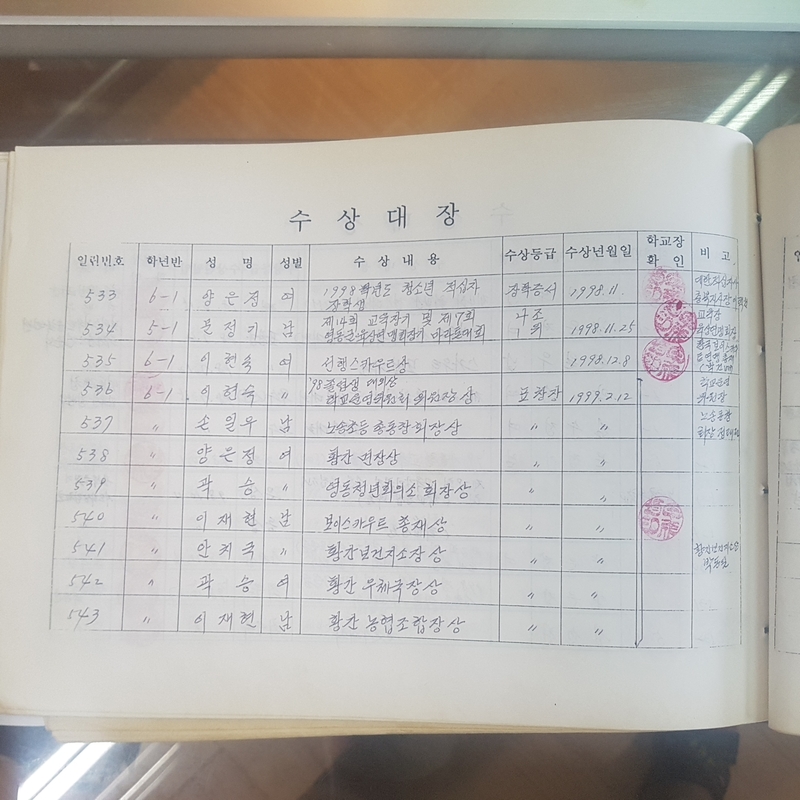 수 상 대 장
일련번호 학년반 성 명 성별 수 상 내 용 수상등급 수상년월일 학교장 확 인 비 고
533 6-1 양은정 여 1998학년도 청소년 적십자 장학생 장학증서 1998.11. 대한적십자사
534 5-1 문정기 남 제14회 교육장기 및 제7회 마라톤대회 1위 1998.11.25 교육장
535 6-1 이현숙 여 선행스카우트상 1998.12.8
536 6-1 이현숙 〃 '98졸업생 대외상 학교운영위원회 위원장상 표창장 1999.2.12 학교운영 위원장
537 〃 손일우 남 노송초등 총동창회장상 〃 〃 노송동창
538 〃 양은정 여 황간 면장상 〃 〃
539 〃 곽승 〃 영동청년회의소 회장상 〃 〃
540 〃 이재현 남 보이스카우트 총재상 〃 〃
541 〃 안치국 〃 황간보건지소장상 〃 〃
542 〃 곽승 여 황간 우체국장상 〃 〃
543 〃 이재현 남 황간 농협조합장상 〃 〃